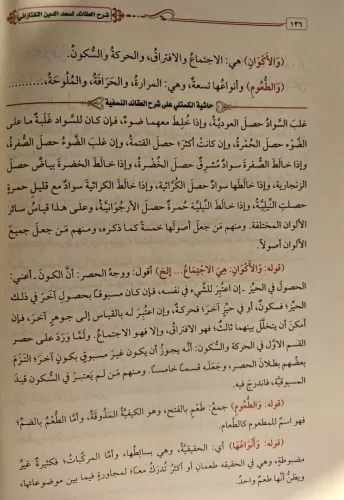 ١٣٦
شرح العقائد لسعد الدين التفتازاني
(وَالأَكْوَانِ) هي: الاجتماعُ والافتراقُ، والحركةُ والسكونُ.
(وَالطُّعُومِ) وأنواعُها تسعةٌ، وهي: المرارةُ، والحَرَافَةُ، والمُلُوحَةُ، .........
حاشية الكستلي على شرح العقائد النسفية
غلبَ السَّوادُ حصلَ العوديَّةُ، وإذا خُلِطَ معهما ضوءٌ، فإن كان للسواد غَلَبةٌ ما على
الضَّوْء حصلَ الحُمْرةُ، وإن كانتْ أكثرَ؛ حصلَ القتمةُ، وإن غلبَ الضَّوءُ حصلَ الصُّفرةُ،
وإذا خالطَ الصُّفرةَ سوادٌ مُشرِقٌ حصلَ الخُضْرةُ، وإذا خالطَ الخضرةَ بياضٌ حصلَ
الزنجارية، وإذا خالطَها سوادٌ حصلَ الكُرَّاثية، وإذا خالَطَ الكراثيةَ سوادٌ مع قليلِ حمرةٍ
حصلتِ النِّيليَّةُ، وإذا خالطَ النِّيليَّةَ حُمرةٌ حصلَ الأرجُوَانيَّةُ، وعلى هذا قياسُ سائرِ
الألوان المختلفة. ومنهم مَن جعلَ أصولَها خمسةً كما ذكره، ومنهم مَن جعلَ جميعَ
الألوانِ أصولاً.
(قوله: وَالأَكْوَانِ: هِيَ الاجْتِمَاعُ... إلخ) أقول: ووجهُ الحصر: أنَّ الكونَ - أعني:
الحصولَ في الحيِّزِ - إن اعتُبِرَ للشيءِ في نفسِه، فإن كان مسبوقًا بحصولٍ آخرَ في ذلك
الحيِّز؛ فسكونٌ، أو في حيِّزٍ آخرَ؛ فحركةٌ، وإن اعتُبِرَ له بالقياسِ إلى جوهرٍ آخرَ، فإن
أمكنَ أن يتخلَّلَ بينهما ثالثٌ؛ فهو الافتراقُ، وإلا فهو الاجتماعُ. ولَمَّا وَرَدَ على حصرِ
القسمِ الأوَّل في الحركة والسكون: أنَّه يجوزُ أن يكون غيرَ مسبوقٍ بكونٍ آخرَ؛ التزمَ
بعضُهم بطلانَ الحصرِ، وجعلَه قسمًا خامسًا. ومنهم مَن لم يَعتبِرْ في السكون قيدَ
المسبوقيَّة، فاندرجَ فيه.
(قوله: وَالطُّعُومِ) جمعُ: طَعْمٍ بالفتح، وهو الكيفيَّةُ المَذُوقةُ، وأمَّا الطُّعْمُ بالضمِّ؛
فهو اسمٌ للمطعوم كالطَّعام.
(قوله: وَأَنْوَاعُهَا) أي: الحقيقيَّة، وهي بسائطُها، وأمَّا المركَّباتُ؛ فكثيرةٌ غيرُ
مضبوطةٍ، وهي في الحقيقة طعمانِ أو أكثرُ تُدرَكُ معًا؛ لمجاورةٍ فيما بين موضوعاتِها،
ويظنُّ أنَّها طعمٌ واحدٌ.